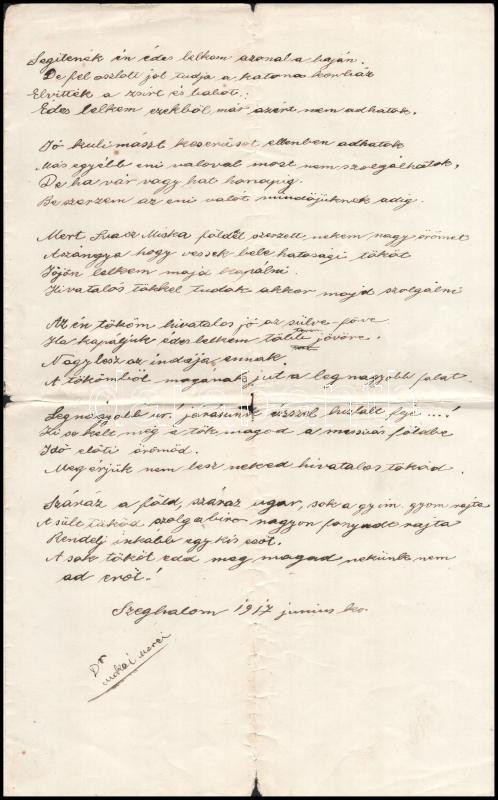 Segitenék én édes lelkem azonal a baján.
De fel oszlott jól tudja a katona
Elvitték a zsirt és babot.
Édes lelkem ezekből már azért nem adhatok.
Jó kulimászt keserüsót ellenben adhatok
Más egyébb eni valoval most nem szolgálhatok,
De ha vár vagy hat honapig.
Be szerzem az eni valót mindöjüknek adig.
Mert Miska földet szerzett, nekem nagy örömet
Aszongya hogy vessek bele hatosági tököt
Jöjön lelkem majd kapálni.
Hivatalos tökkel tudok akkor majd szolgálni
Az én tököm hivatalos jó az sülve-főve
Ha kapáljuk édes lelkem jövőre.
Nagy lesz az indája ennek.
A tökömből maganak jut a legnagyobb falat.
Legnagyobb ur. járásunk ésszel feje ....!
a tök magod a földbe
Idő előtt örömöd.
Megérjük nem lesz neked hivatalos tököd.
Száraz a föld, száraz ugar, sok a gyom rajta
A sült tököd szolgabiro nagyon rajta
Rendelj inkább egy kis esőt.
A sok tököt edd meg magad nekünk nem
ad erőt!
Szeghalom 1917 junius ho.
Dr